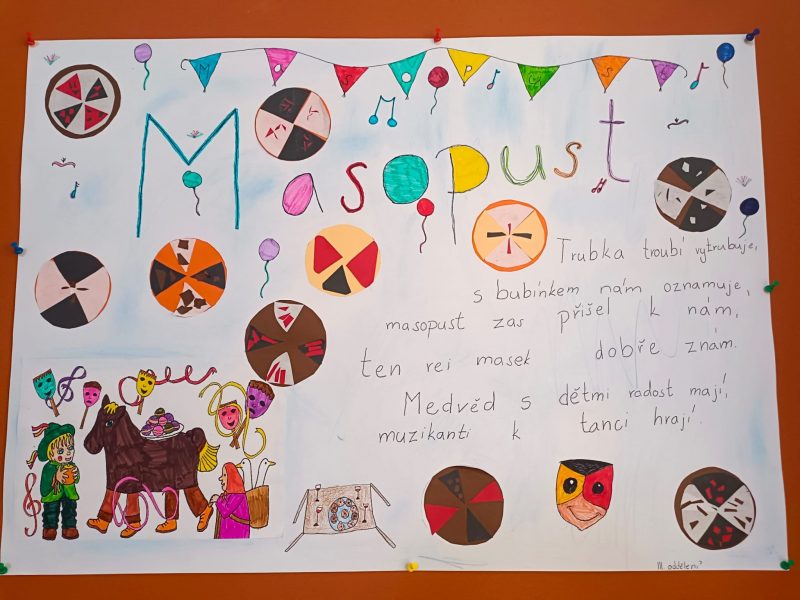 MASOPUST
Masopust
Trubka troubí vytrubuje,
s bubínkem nám oznamuje,
masopust zas přišel k nám,
ten rej masek dobře znám.
Medvěd s dětmi radost mají,
muzikanti k tanci hrají.
III. oddělení